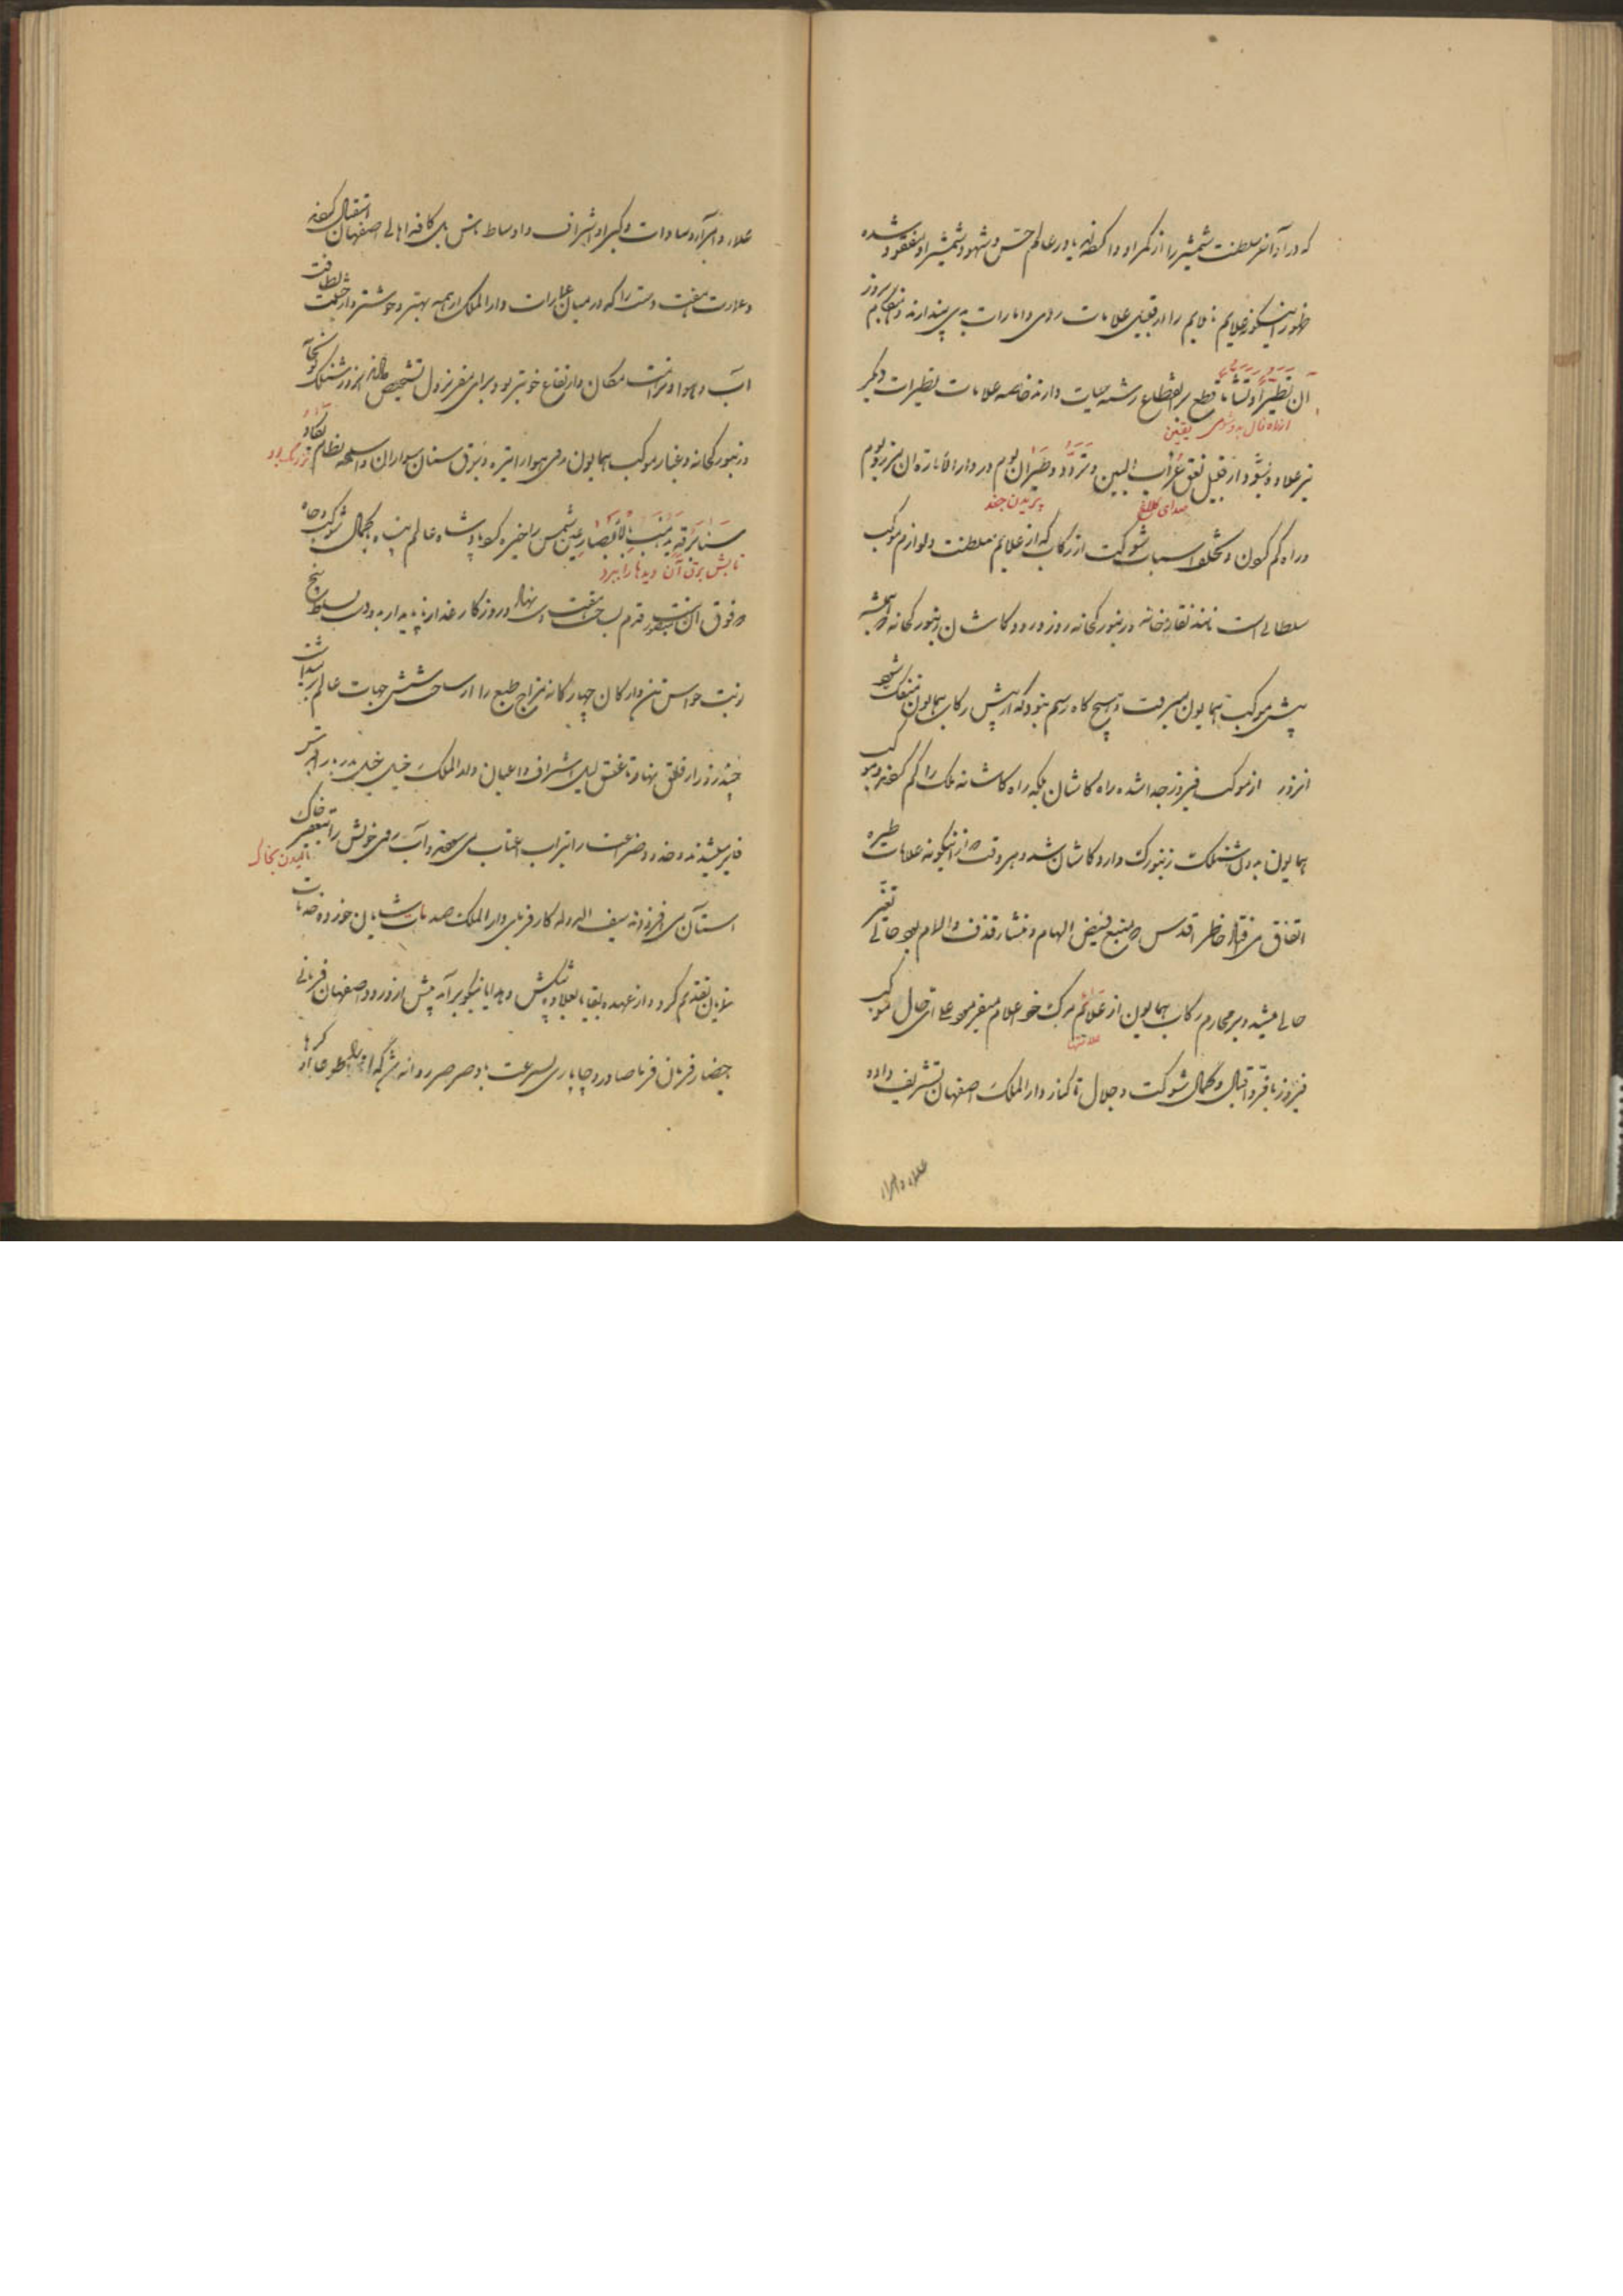 که در آنفر سلطنت شمشیر را از کمر او واکرده یا در عالم حس و شهود شمشیر او مفقود شده
ظهور اینگونه علایم نا ملایم را از قبیل علامات ردی و امارات بدی پندارند و هنگام بروز
آن تطیّراً و تشأماً قطع بر انقطاع رشته حیات دارند خاصه علامات تطیرات دیگر
از راه فال بد و شومی یقین
نیز علاوه شود از قبیل نعق غراب البین و تردّد و طیران بوم در دار الاماره آن مرز و بوم
صدای کلاغ
پریدن جغد
و راه گم کردن و تخلف اسباب شوکت از رکاب که از علایم سلطنت و لوازم موکب
سلطانی است مانند نقاره خانه و زنبورکخانه روز ورود کاشان زنبورکخانه که همیشه
پیش موکب همایون میرفت و هیچ گاه رسم نبود که از پیش رکاب همایون منفک شود
آنروز از موکب فیروز جدا شده راه کاشان بلکه راه کاشانه ملک را گم کردند و موکب
همایون بدون شنلیک زنبورک وارد کاشان شد و هر وقت که از اینگونه علامات طیره
اتفاق می‌افتاد خاطر اقدس که منبع فیض الهام و منشأ قذف و الام بود حالی تغیر
حالی میشد و بر محارم رکاب همایون از علائم مرگ خود اعلام میفرمود علی ای حال موکب
علامتها
فیروز با فرّ و اقبال و کمال شوکت و جلال تا کنار دار الملک اصفهان تشریف داده
علماء و امراء
علماء و امراء و سادات و کبراء و اشراف و اوساط ناس بل کافه اهالی اصفهان استقبال کردند
و عمارت هفت دست را که در میان عمارات دار الملک از همه بهتر و خوشتر و از حیثیت لطافت
آب و هوا و نزاهت مکان و ارتفاع خوبتر بود برای مقر نزول تشخیص دادند آنروز شنلیک توپخانه
و زنبورکخانه و غبار موکب همایون روی هوا را تیره و برق سنان سواران و اسلحه نظام یکاد
نزدیک بود
سنا برقه یذهب بالابصار عین شمس را خیره کرد پادشاه عالم پناه بکمال شوکت و جاه
تابش برق آن دیدها را ببرد
قدم به هفت دست نهاد و روزگار غدار ناپایدار بدو دست تسلط پنج
نوبت حواس تن و ارکان چهارگانه مزاج طبع را از ساحت شش جهات عالم برداشت
چند روز از فلق نهار تا غسق لیل اشراف و اعیان دار الملک خیل خیل
جبین را بتراب اعتاب می سودند و آب روی خویش را بتعفیر خاک
مالیدن بخاک
آستان می افزودند سیف الدوله کارفرمای دار الملک خدمات شایان خود و خدمات
نمایان تقدیم کرد و از عهده بقایا بعلاوه پیشکش و هدایا نیکو برآمد پیش از ورود اصفهان فرمانی
باحضار فرمان فرما صادر و چاپاری بسرعت باد صرصر روانه شد